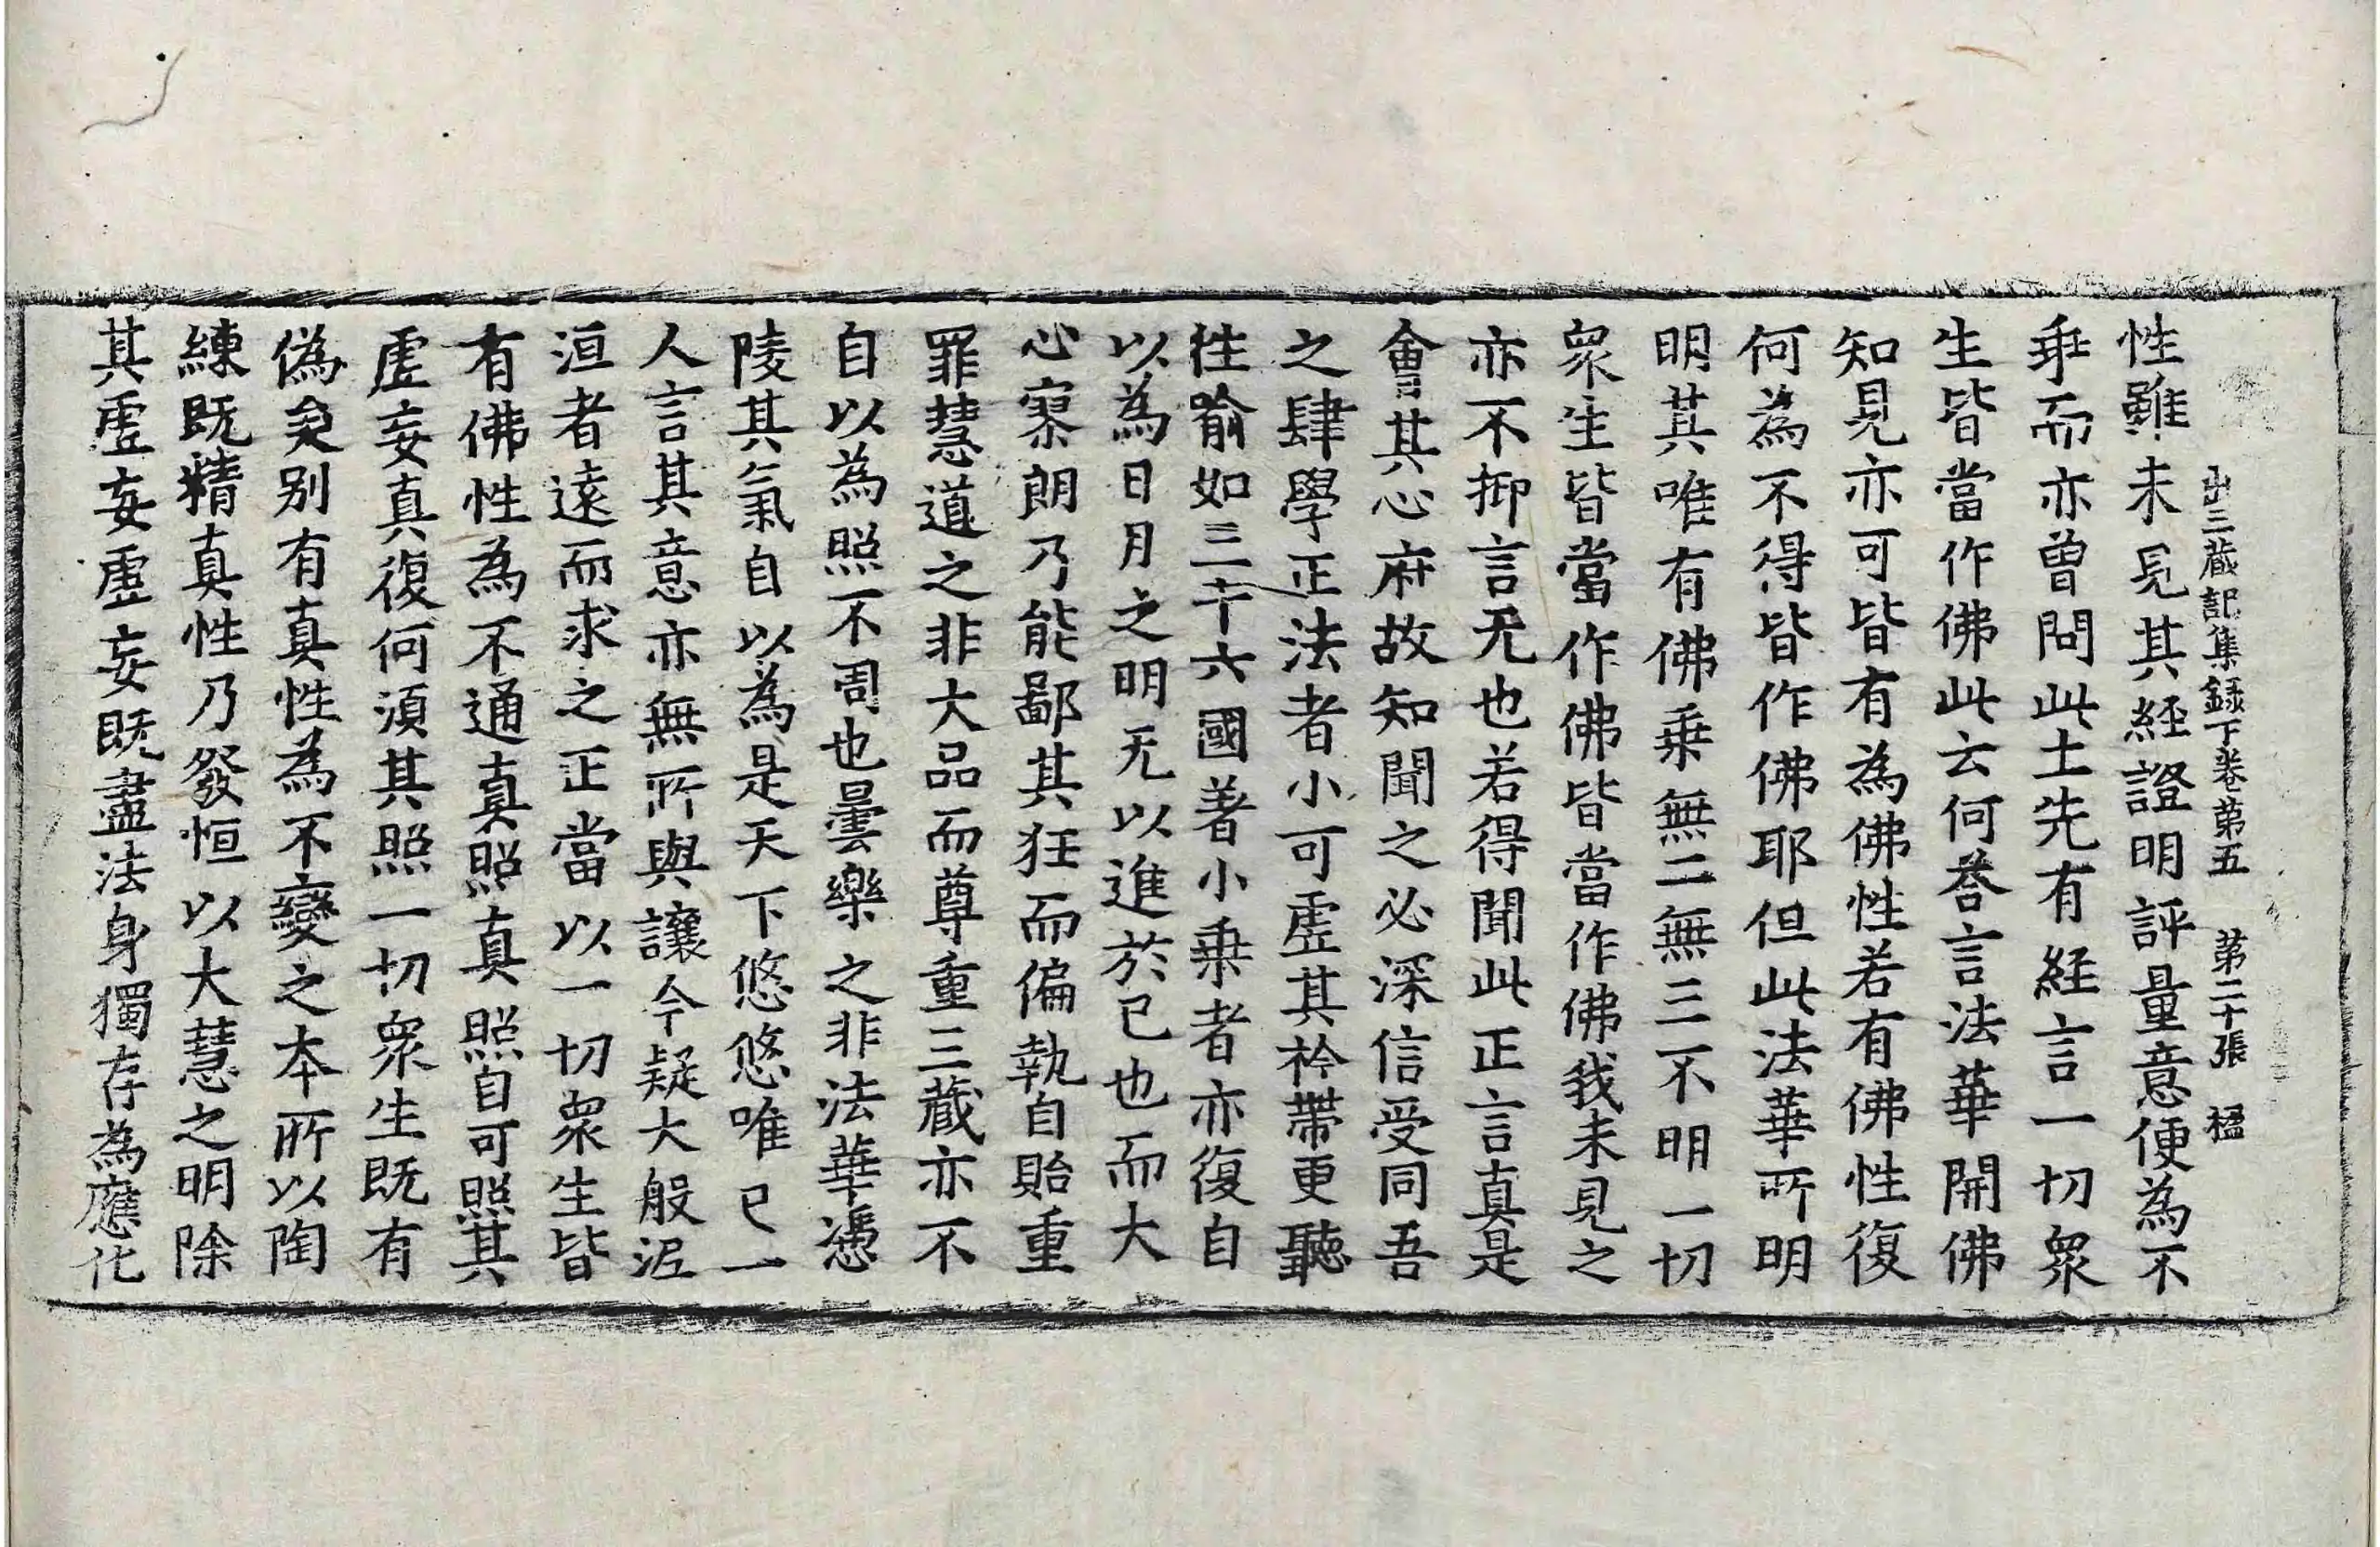 出三蔵記集録下巻第五 第二十張 楹
性雖未見其經證明評量意便為不
乖而亦曽問此土先有経言一切衆
生皆當作佛此云何荅言法華開佛
知見亦可皆有為佛性若有佛性復
何為不得皆作佛耶但此法華所明
明其唯有佛乗無二無三不明一切
衆生皆當作佛皆當作佛我未見之
亦不抑言无也若得聞此正言真是
會其心府故知聞之必深信受同吾
之肆學正法者小可虚其衿帶更聽
往喻如三十六國著小乗者亦復自
以為日月之明无以進於已也而大
心寥朗乃能鄙其狂而偏執自貽重
罪慧導之非大品而尊重三蔵亦不
自以為照不周也曇樂之非法華憑
陵其氣自以為是天下悠悠唯已一
人言其意亦無所與讓今疑大般泥
洹者遠而求之正當以一切衆生皆
有佛性為不通真照真照自可照其
虚妄真復何湏其照一切衆生既有
偽矣别有真性為不變之本所以陶
練既精真性乃發恒以大慧之明除
其虚妄虚妄既盡法身獨存為應化